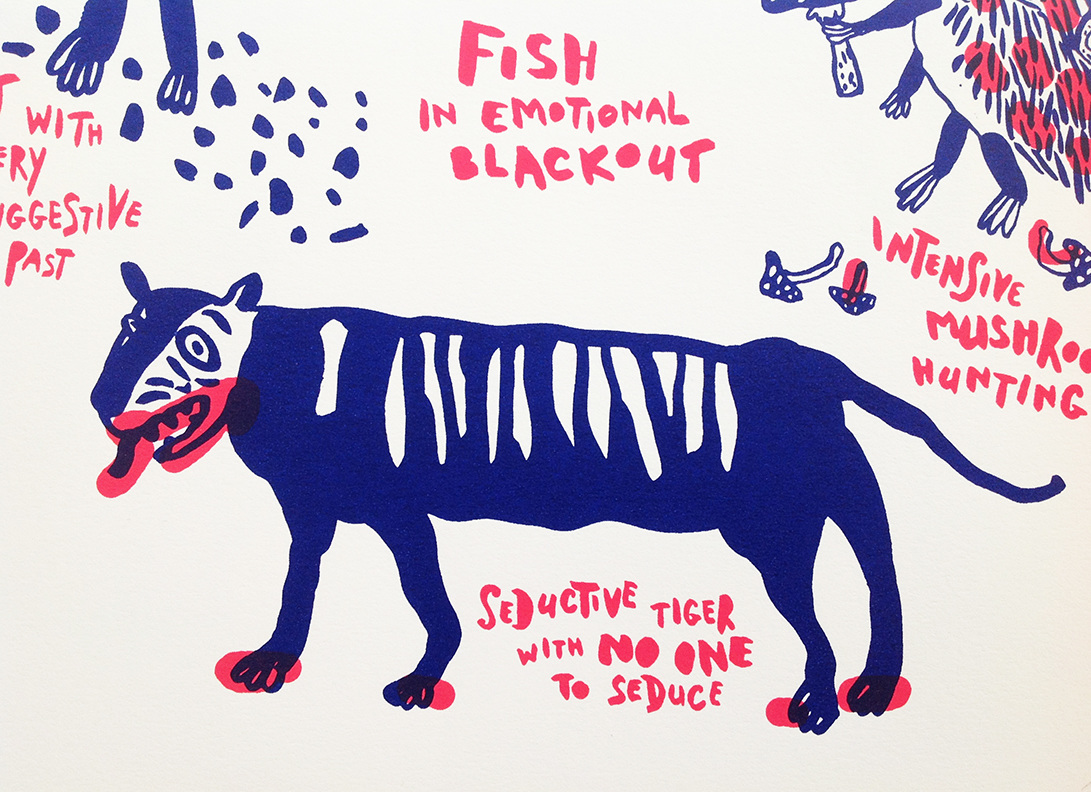 FISH
IN EMOTIONAL
BLACKOUT
WITH
PAST
INTENSIVE
HUNTING
SEDUCTIVE TIGER
WITH NO ONE
TO SEDUCE